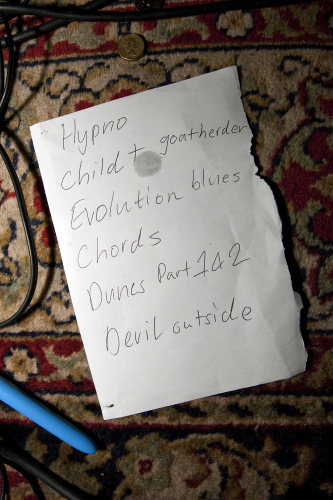 Hypno
Child + goatherder
Evolution blues
Chords
Dunes Part 1&2
Devil outside